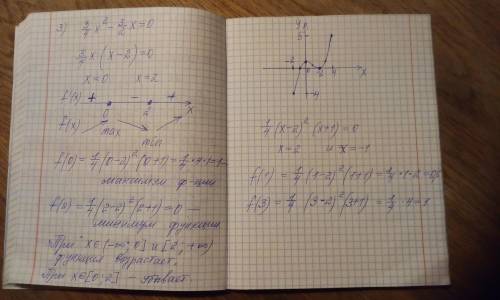 3) 3/4 x² - 3/2 x = 0
3/4 x (x - 2) = 0
x = 0 x = 2
f'(x) + - + x
0 2
f(x) max min
f(0) = 1/4 (0-2)² (0+1) = 1/4 · 4 · 1 = 1 —
максимум ф-ции
f(2) = 1/4 (2-2)² (2+1) = 0 —
минимум функции
При x∈(-∞; 0] и [2; +∞)
функция возрастает.
При x∈[0; 2] - убывает.
y
5
-2 0 2 4 x
-4
1/4 (x-2)² (x+1) = 0
x = 2 и x = -1
f(1) = 1/4 (1-2)² (1+1) = 1/4 · 1 · 2 = 0,5
f(3) = 1/4 (3-2)² (3+1) = 1/4 · 4 = 1